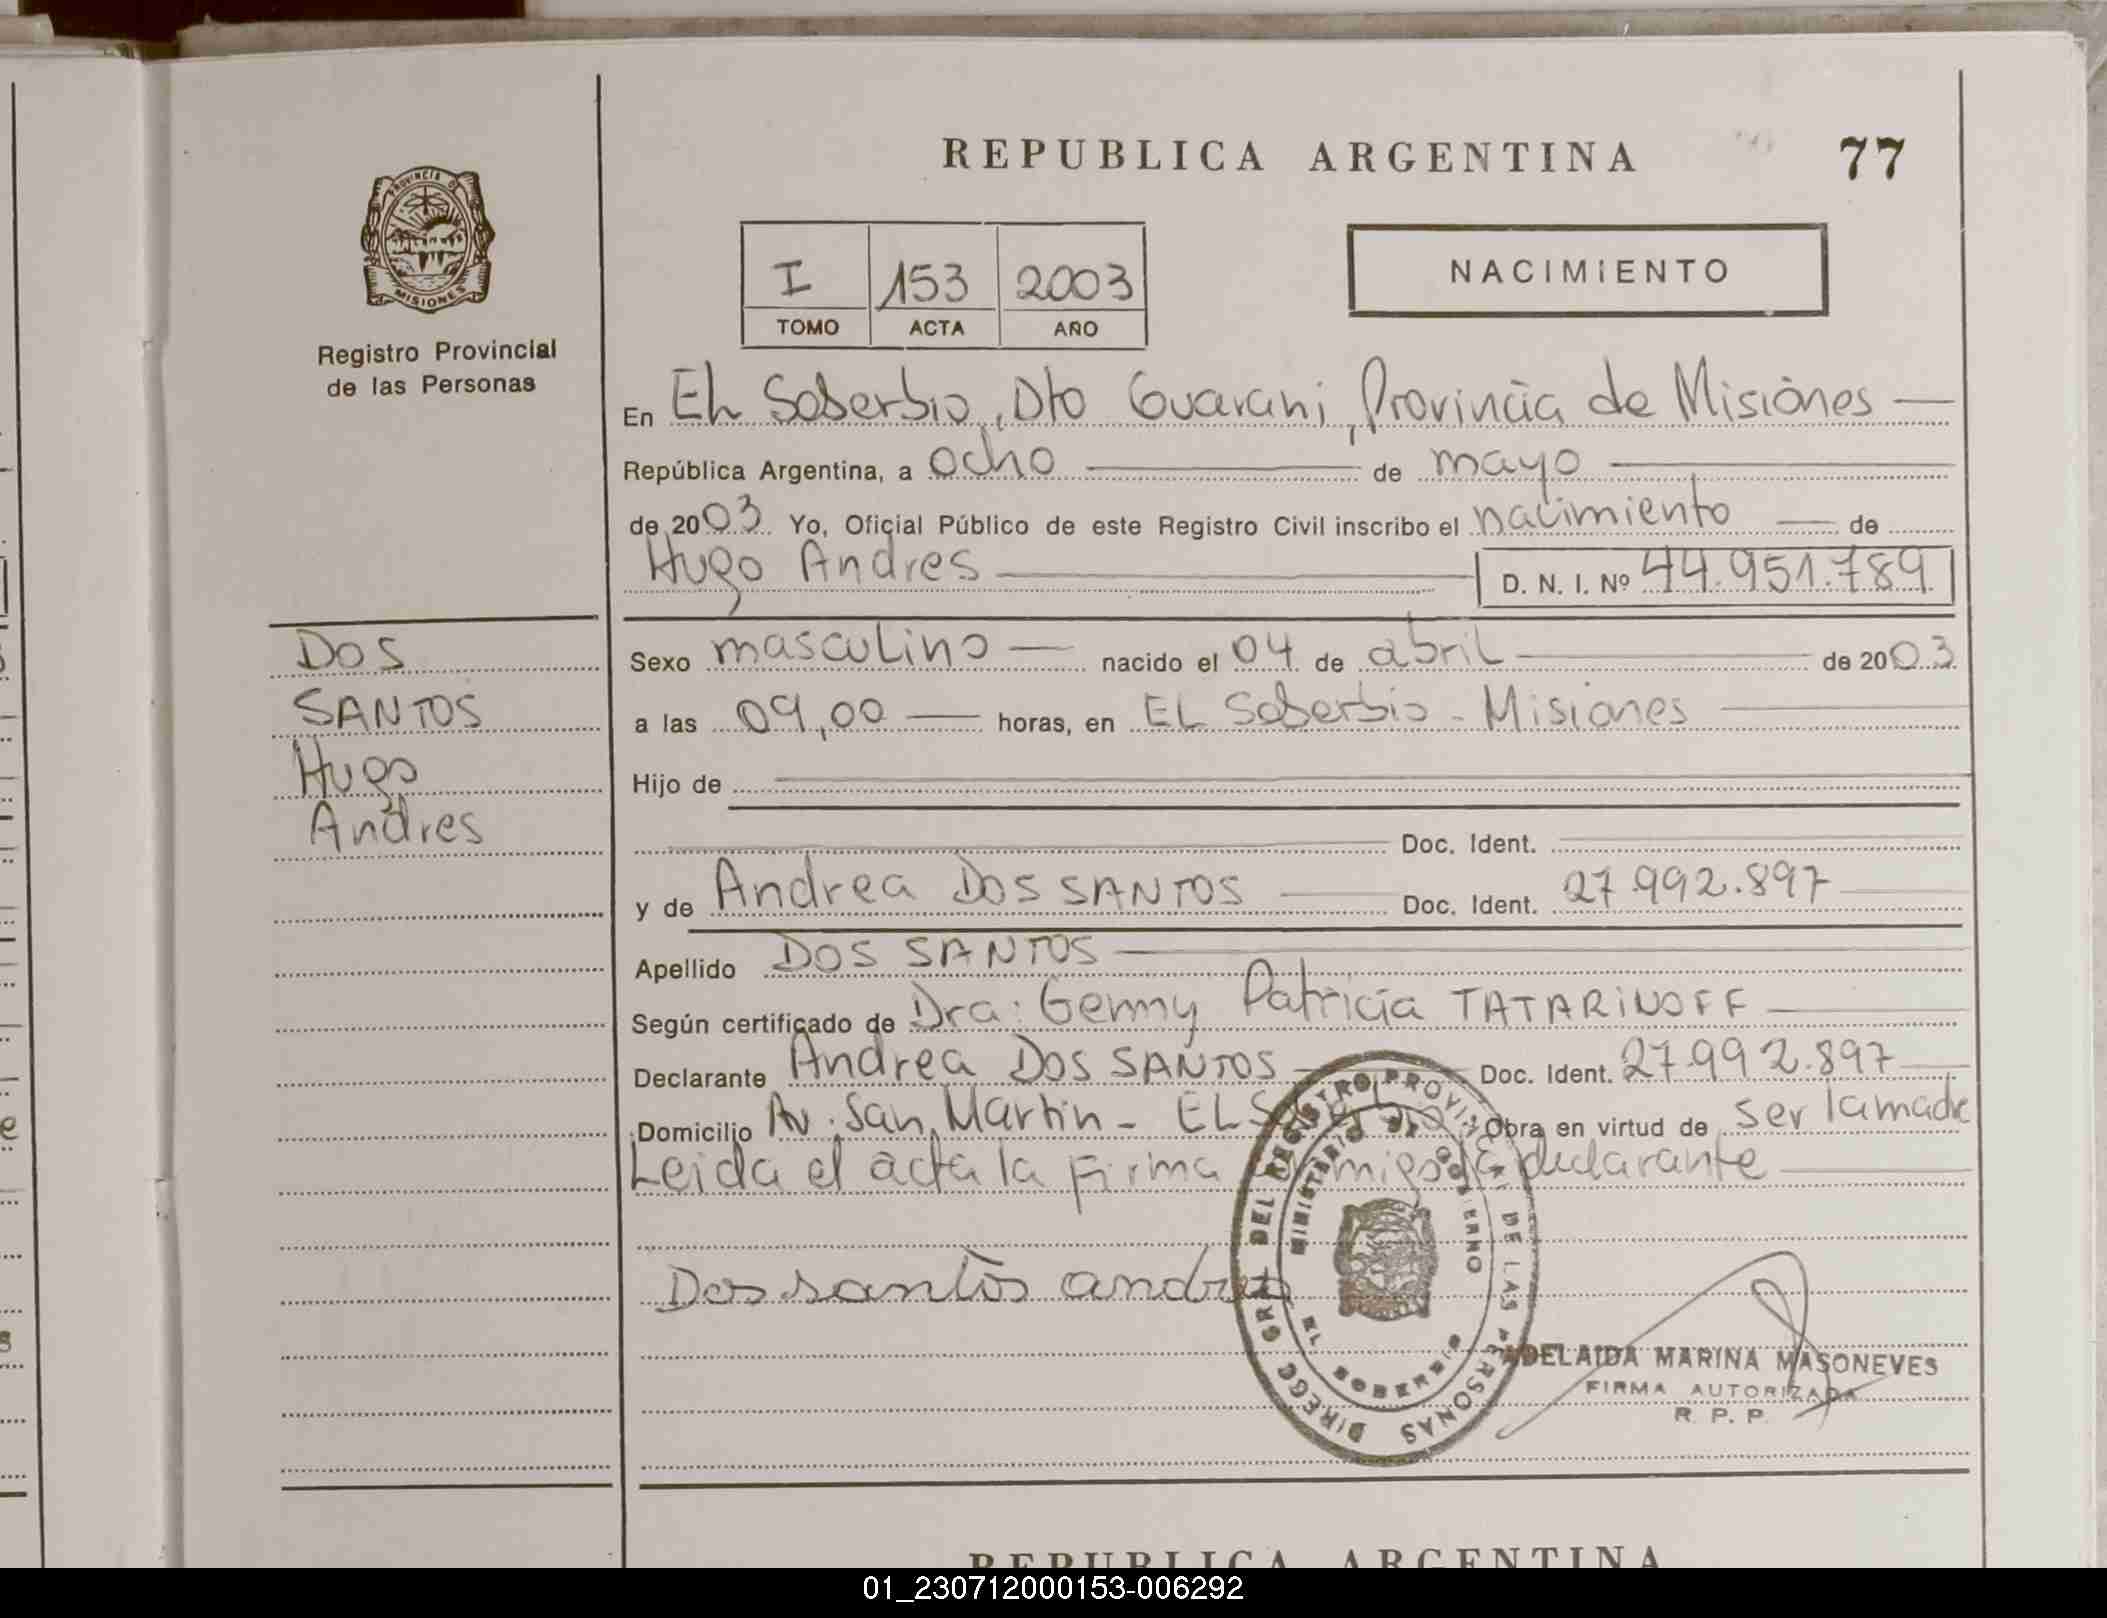 REPUBLICA ARGENTINA 77
PROVINCIA DE
MISIONES
Registro Provincial
de las Personas
I 153 2003
TOMO ACTA AÑO
NACIMIENTO
En EL Soberbio, Dto Guarani, Provincia de Misiones
República Argentina, a ocho de mayo
de 2003 Yo, Oficial Público de este Registro Civil inscribo el nacimiento de
Hugo Andres D. N. I. Nº 44.951.789
DOS
SANTOS
Hugo
Andres
Sexo masculino nacido el 04 de abril de 2003
a las 09,00 horas, en EL Soberbio - Misiones
Hijo de
Doc. Ident.
y de Andrea DOS SANTOS Doc. Ident. 27.992.897
Apellido DOS SANTOS
Según certificado de Dra: Genny Patricia TATARINOFF
Declarante Andrea DOS SANTOS Doc. Ident. 27.992.897
Domicilio Av. San Martin - EL Soberbio Obra en virtud de ser la madre
Leida el acta la firma conmigo la declarante
Dos santos andrea
DIRECC GRAL DEL REGISTRO PROVINCIAL DE LAS PERSONAS
MINISTERIO DE GOBIERNO
EL SOBERBIO
ADELAIDA MARINA MASONEVES
FIRMA AUTORIZADA
R. P. P.
REPUBLICA ARGENTINA
01_230712000153-006292